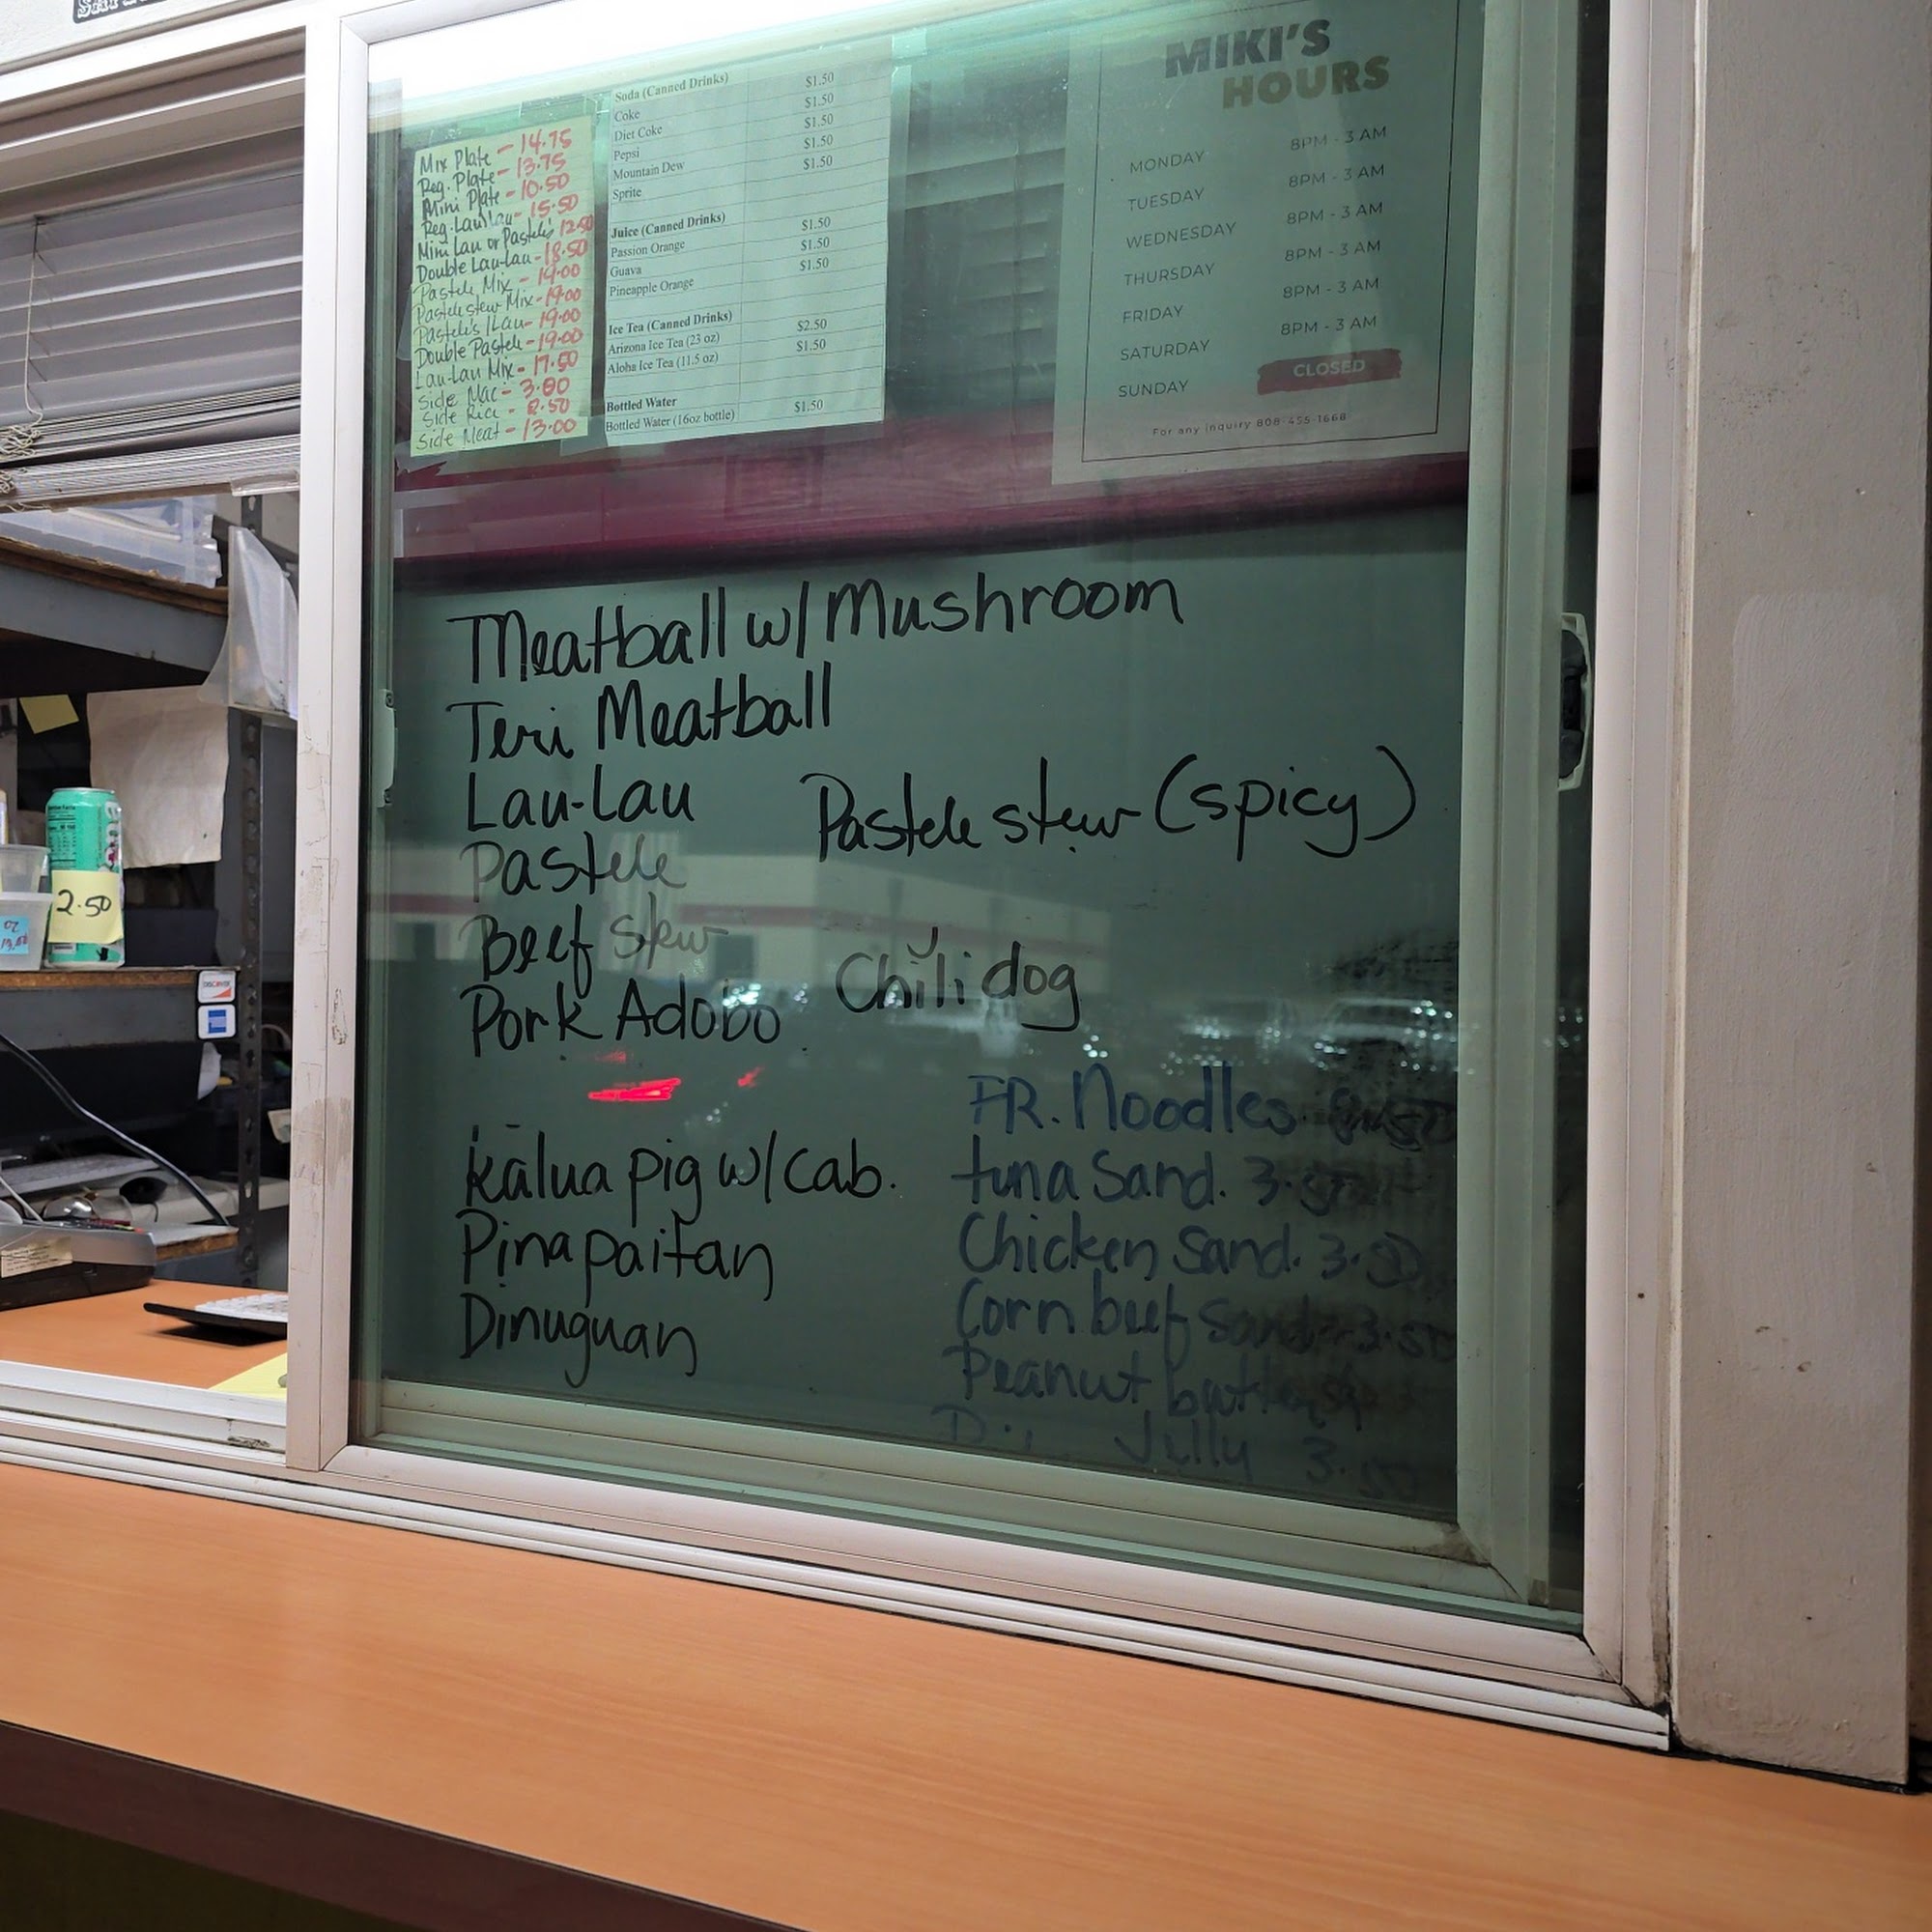 Mix Plate - 14.75
Reg. Plate - 13.75
Mini Plate - 10.50
Reg. Lau Lau - 15.50
Mini Lau or Pastele's 12.50
Double Lau-Lau - 18.50
Pastele Mix - 19.00
Pastele stew Mix - 19.00
Pastele's 1 Lau - 19.00
Double Pastele - 19.00
Lau-Lau Mix - 17.50
Side Mac - 3.80
Side Rice - 2.50
Side Meat - 13.00
Soda (Canned Drinks) $1.50
Coke $1.50
Diet Coke $1.50
Pepsi $1.50
Mountain Dew $1.50
Sprite
Juice (Canned Drinks) $1.50
Passion Orange $1.50
Guava $1.50
Pineapple Orange
Ice Tea (Canned Drinks) $2.50
Arizona Ice Tea (23 oz) $1.50
Aloha Ice Tea (11.5 oz)
Bottled Water $1.50
Bottled Water (16oz bottle)
MIKI'S
HOURS
MONDAY 8PM - 3 AM
TUESDAY 8PM - 3 AM
WEDNESDAY 8PM - 3 AM
THURSDAY 8PM - 3 AM
FRIDAY 8PM - 3 AM
SATURDAY 8PM - 3 AM
SUNDAY CLOSED
For any inquiry 808-455-1668
Meatball w/ Mushroom
Teri Meatball
Lau-Lau
Pastele stew (spicy)
Pastele
Beef stew
Chili dog
Pork Adobo
Kalua pig w/ cab.
Pinapaitan
Dinuguan
FR. Noodles 8.50
tuna Sand. 3.50
Chicken Sand. 3.50
Corn beef Sand. 3.50
Peanut butter
Jelly 3.50
2.50
DISCOVER